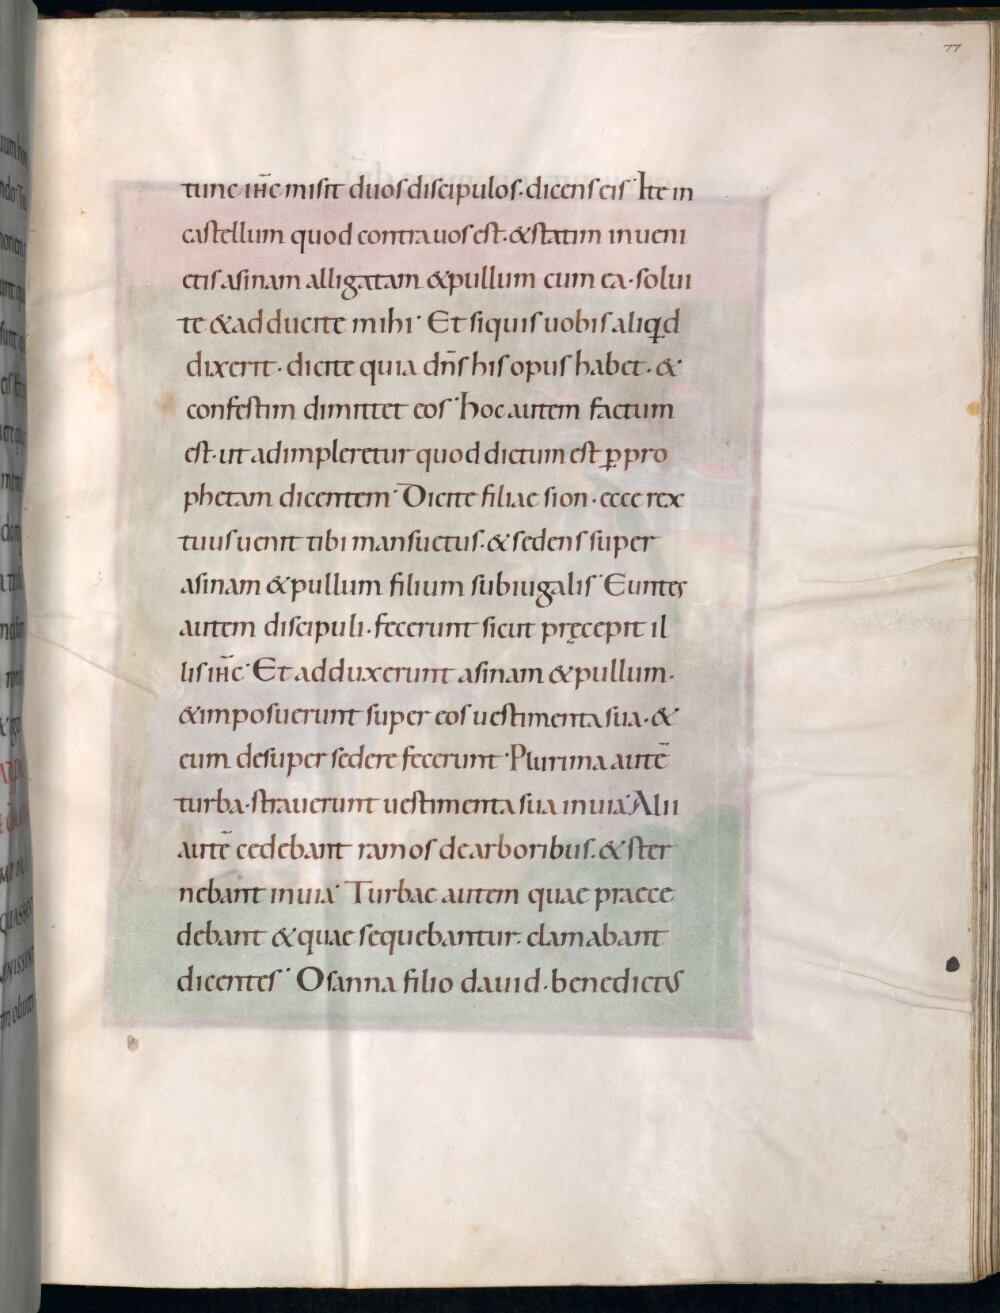 77
tunc ih̅c misit duos discipulos· dicens eis· Ite in
castellum quod contra uos est· &statim inueni
etis asinam alligatam &pullum cum ea· solui
te &adducite mihi· Et siquis uobis aliqd
dixerit· dicite quia dn̅s his opus habet· &
confestim dimittet eos· hoc autem factum
est· ut adimpleretur quod dictum est ꝑ pro
phetam dicentem· Dicite filiae sion· ecce rex
tuus uenit tibi mansuetus· &sedens super
asinam &pullum filium subiugalis· Euntes
autem discipuli· fecerunt sicut pręcepit il
lis ih̅c· Et adduxerunt asinam &pullum·
&imposuerunt super eos uestimenta sua· &
eum desuper sedere fecerunt· Plurima aute̅
turba· strauerunt uestimenta sua inuia· Alii
aute̅ cedebant ramos de arboribus· &ster
nebant inuia· Turbae autem quae praece
debant &quae sequebantur· clamabant
dicentes· Osanna filio dauid· benedictus